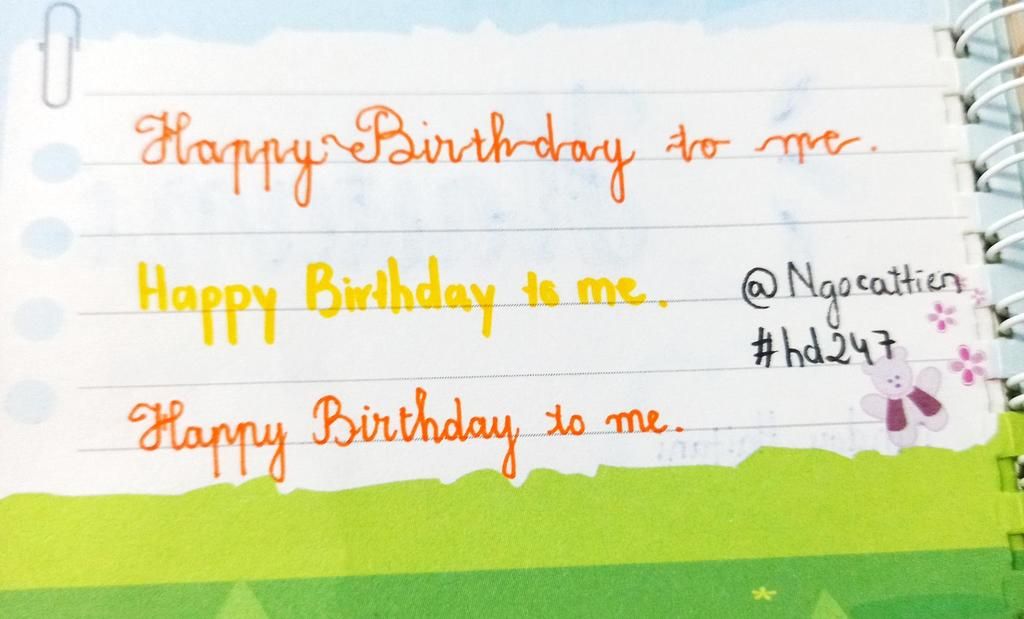 Happy Birthday to me.
Happy Birthday to me.
@Ngocattien
#hd247
Happy Birthday to me.